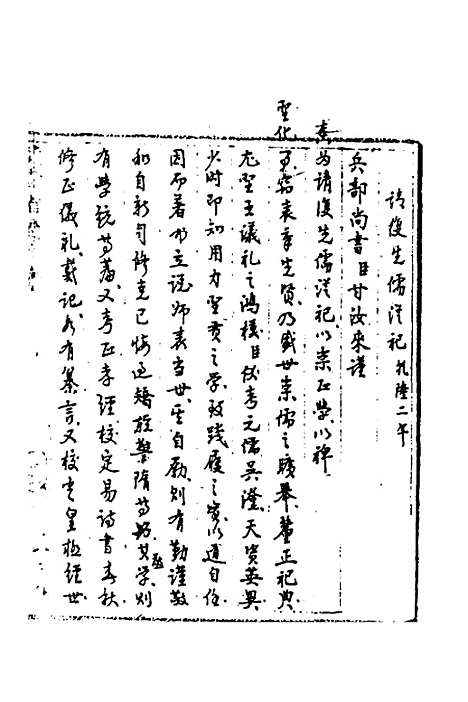 請復先儒從祀 乾隆二年
兵部尚書臣甘汝來謹
奏為請復先儒從祀以崇正學以裨
聖化事竊表章先賢乃盛世崇儒之曠舉釐正祀典
尤聖王議禮之鴻模臣伏考元儒吳澄天資英異
少時即知用力聖賢之學致踐履之實以道自任
因而著書立說師表當世其自勵則有勤謹敬
和自新自修克己悔過矯輕警惰等銘其學則
有學統等篇又考正孝經校定易詩書春秋
修正儀禮戴記各有纂言又校老皇極經世